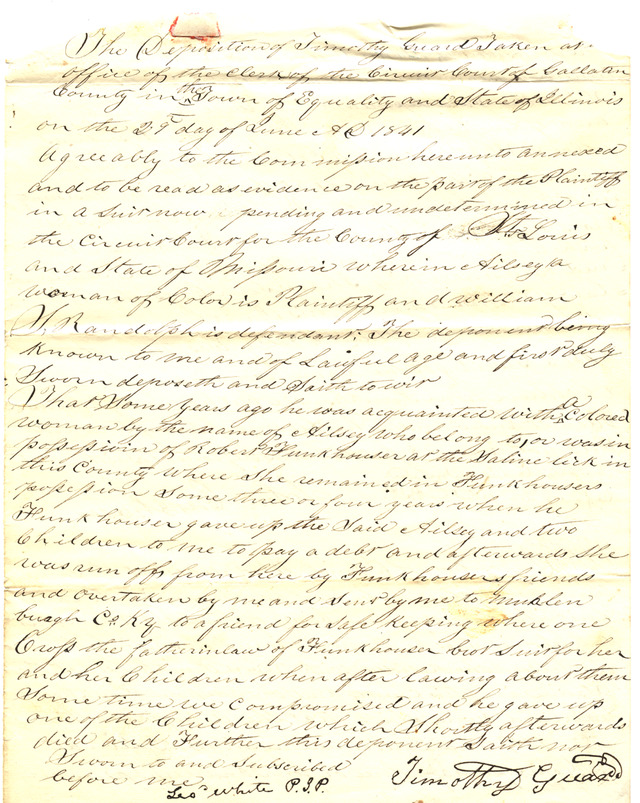 The Deposition of Timothy Guard Taken at
office of the clerk of the Circuit Court of Gallatin
County in the Town of Equality and State of Illinois
on the 29th day of June AD 1841
Agreeably to the Commission hereunto annexed
and to be read as evidence on the part of the Plaintiff
in a Suit now pending and undetermined in
the Circuit Court for the County of St. Louis
and State of Missouri wherein Ailsey a
woman of Color is Plaintiff and William
Randolph is defendant; The deponent being
known to me and of Lawful age and first duly
Sworn deposeth and Saith to wit
That Some years ago he was acquainted with a Colored
woman by the name of Ailsey who belong to, or was in
possession of Robert Funkhouser at the Saline lick in
this County where she remained in Funkhousers
possession Some three or four years when he
Funkhouser gave up the Said Ailsey and two
Children to me to pay a debt and afterwards she
was run off from here by Funkhousers friends
and overtaken by me and Sent by me to Muhlen
burgh Co Ky to a friend for safe keeping where one
Cross the fatherinlaw of Funkhouser brot Suit for her
and her Children when after lawing about them
Some time we compromised and he gave up
one of the Children which Shortly afterwards
died and Further this deponent Saith not
Sworn to and Subscribed
before me
Timothy Guard
Leo White P.J.P.